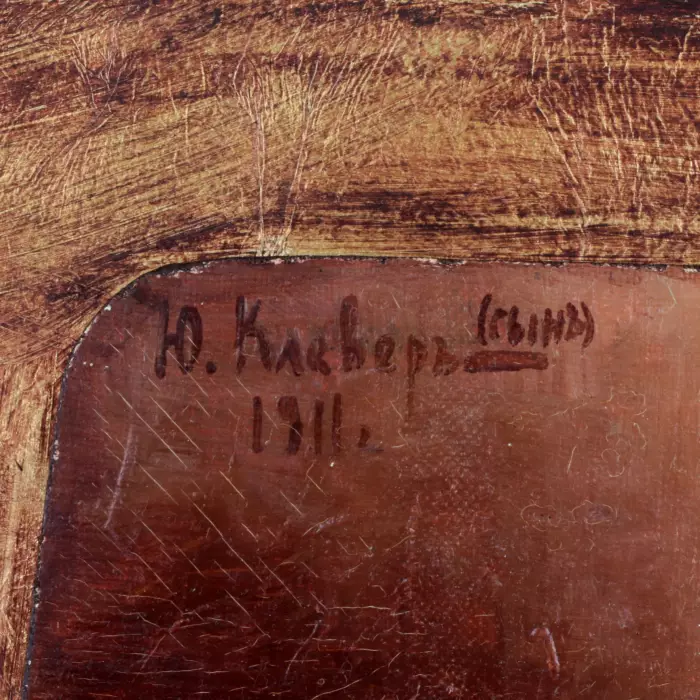 Ю. Клеверъ (сынъ)
1911.